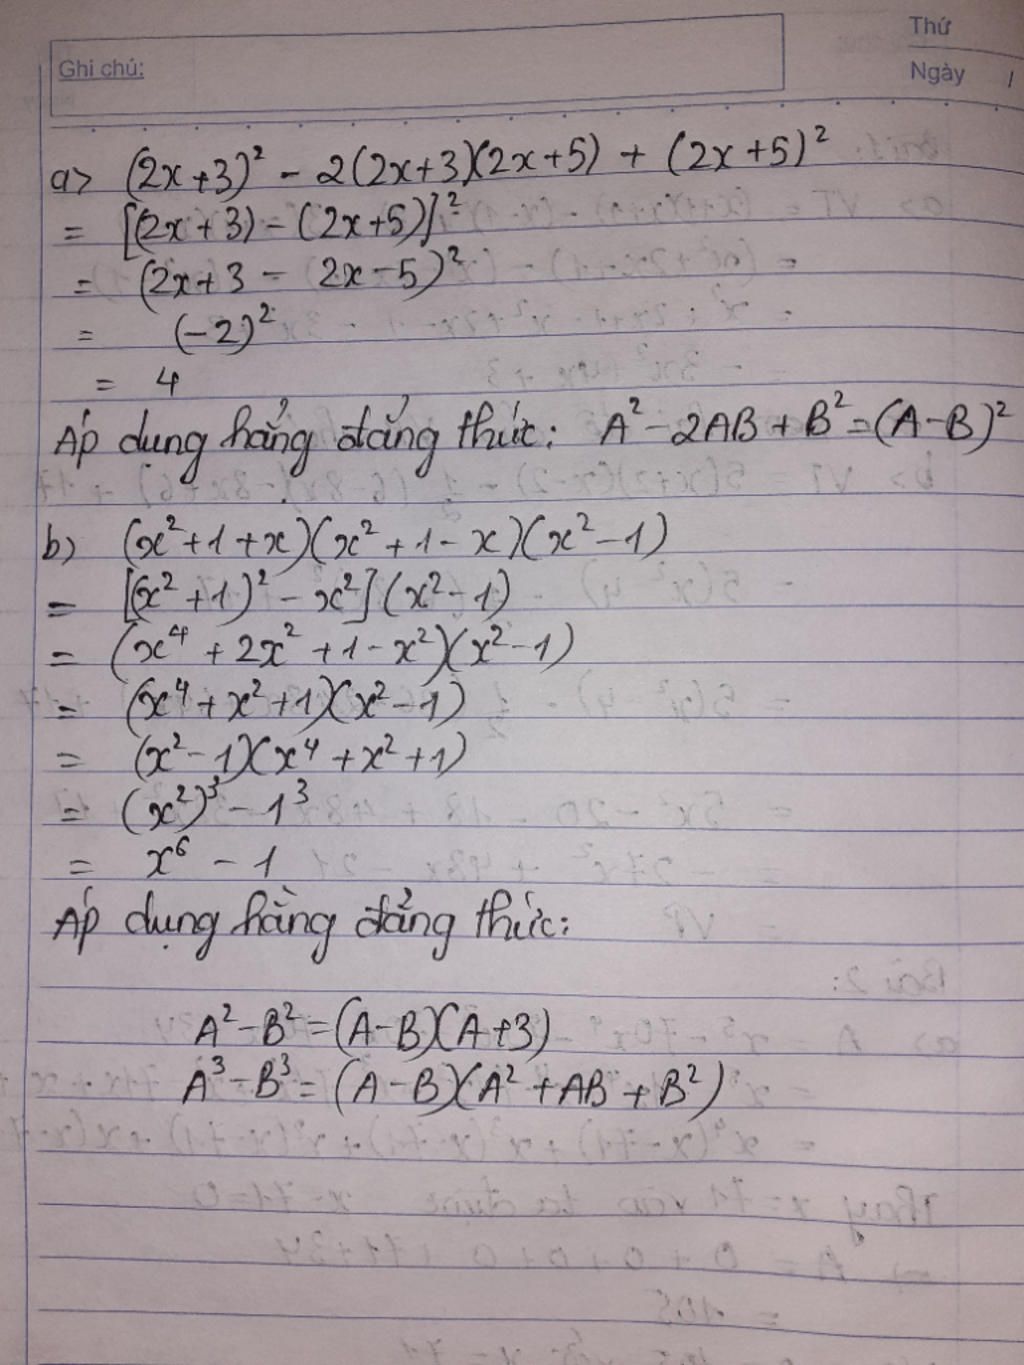 Thứ
Ghi chú:
Ngày /
a> (2x+3)² - 2(2x+3)(2x+5) + (2x+5)²
= [(2x+3) - (2x+5)]²
= (2x+3 - 2x-5)²
= (-2)²
= 4
Áp dụng hằng đẳng thức: A² - 2AB + B² = (A-B)²
b) (x²+1+x)(x²+1-x)(x²-1)
= [(x²+1)² - x²](x²-1)
= (x⁴ + 2x² + 1 - x²)(x²-1)
= (x⁴ + x² + 1)(x² - 1)
= (x² - 1)(x⁴ + x² + 1)
= (x²)³ - 1³
= x⁶ - 1
Áp dụng hằng đẳng thức:
A² - B² = (A-B)(A+3)
A³ - B³ = (A-B)(A² + AB + B²)